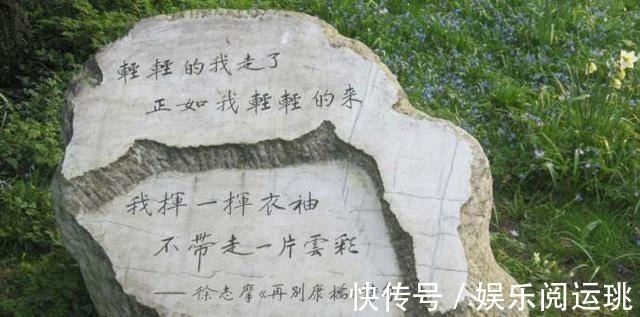 輕輕的我走了
正如我輕輕的来
我揮一揮衣袖
不带走一片雲彩
——徐志摩《再別康橋
快传号/娱乐阅运珧